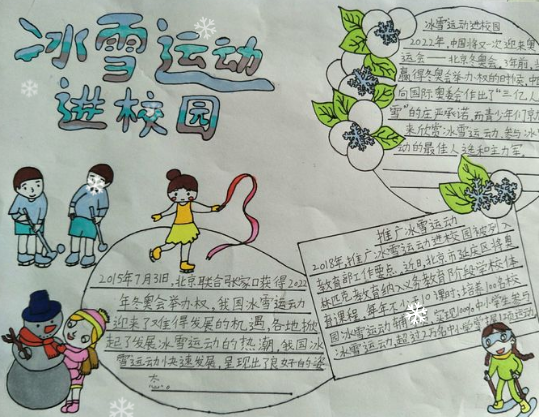 冰雪运动
进校园
冰雪运动进校园
2022年,中国将又一次迎来奥
运会——北京冬奥会,7年前,
赢得冬奥会举办权的时候,中
向国际奥委会作出了"三亿人
雪"的庄严承诺,而青少年们
来欣赏冰雪运动、参与冰
动的最佳人选和主力军。
推广冰雪运动
2018年,推广冰雪运动进校园被列入
教育部工作要点,近日,北京市延庆区将奥
林匹克教育纳入义务教育阶段学校体
育课程,每年不少于10课时,培养100名校
园冰雪运动辅 实现100%中小学生参与
冰雪运动,超过2万名中小学生掌握1项运动
2015年7月31日,北京联合张家口获得2022
年冬奥会举办权,我国冰雪运动
迎来了难得发展的机遇,各地掀
起了发展冰雪运动的热潮,我国冰
雪运动快速发展,呈现出了良好的姿
态